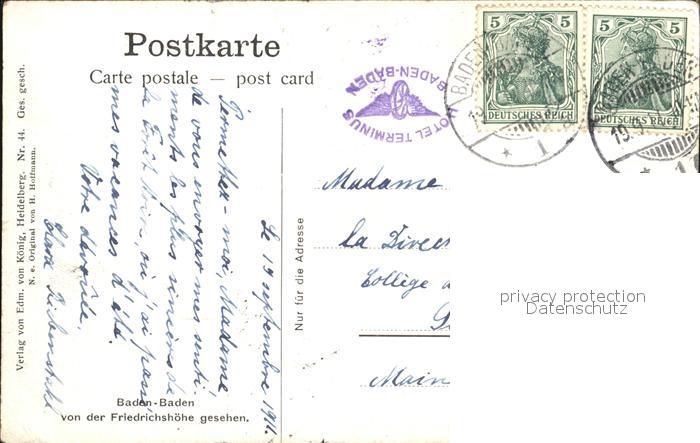 Postkarte
Carte postale — post card
Verlag von Edm. von König, Heidelberg. Nr. 44. Ges. gesch.
N. e. Original von H. Hoffmann.
Le 19 septembre 1911.
Permettez-moi, Madame,
de vous envoyer mes senti-
ments les plus sincères de
la Forêt Noire, où j'ai passé
mes vacances d'été.
Votre dévouée
Clara
Baden-Baden
von der Friedrichshöhe gesehen.
Nur für die Adresse
HOTEL TERMINUS
BADEN-BADEN
5 5
DEUTSCHES REICH
5 5
DEUTSCHES REICH
BADEN-BADEN
* 1
Madame
La Direc
Collège
Main
privacy protection
Datenschutz